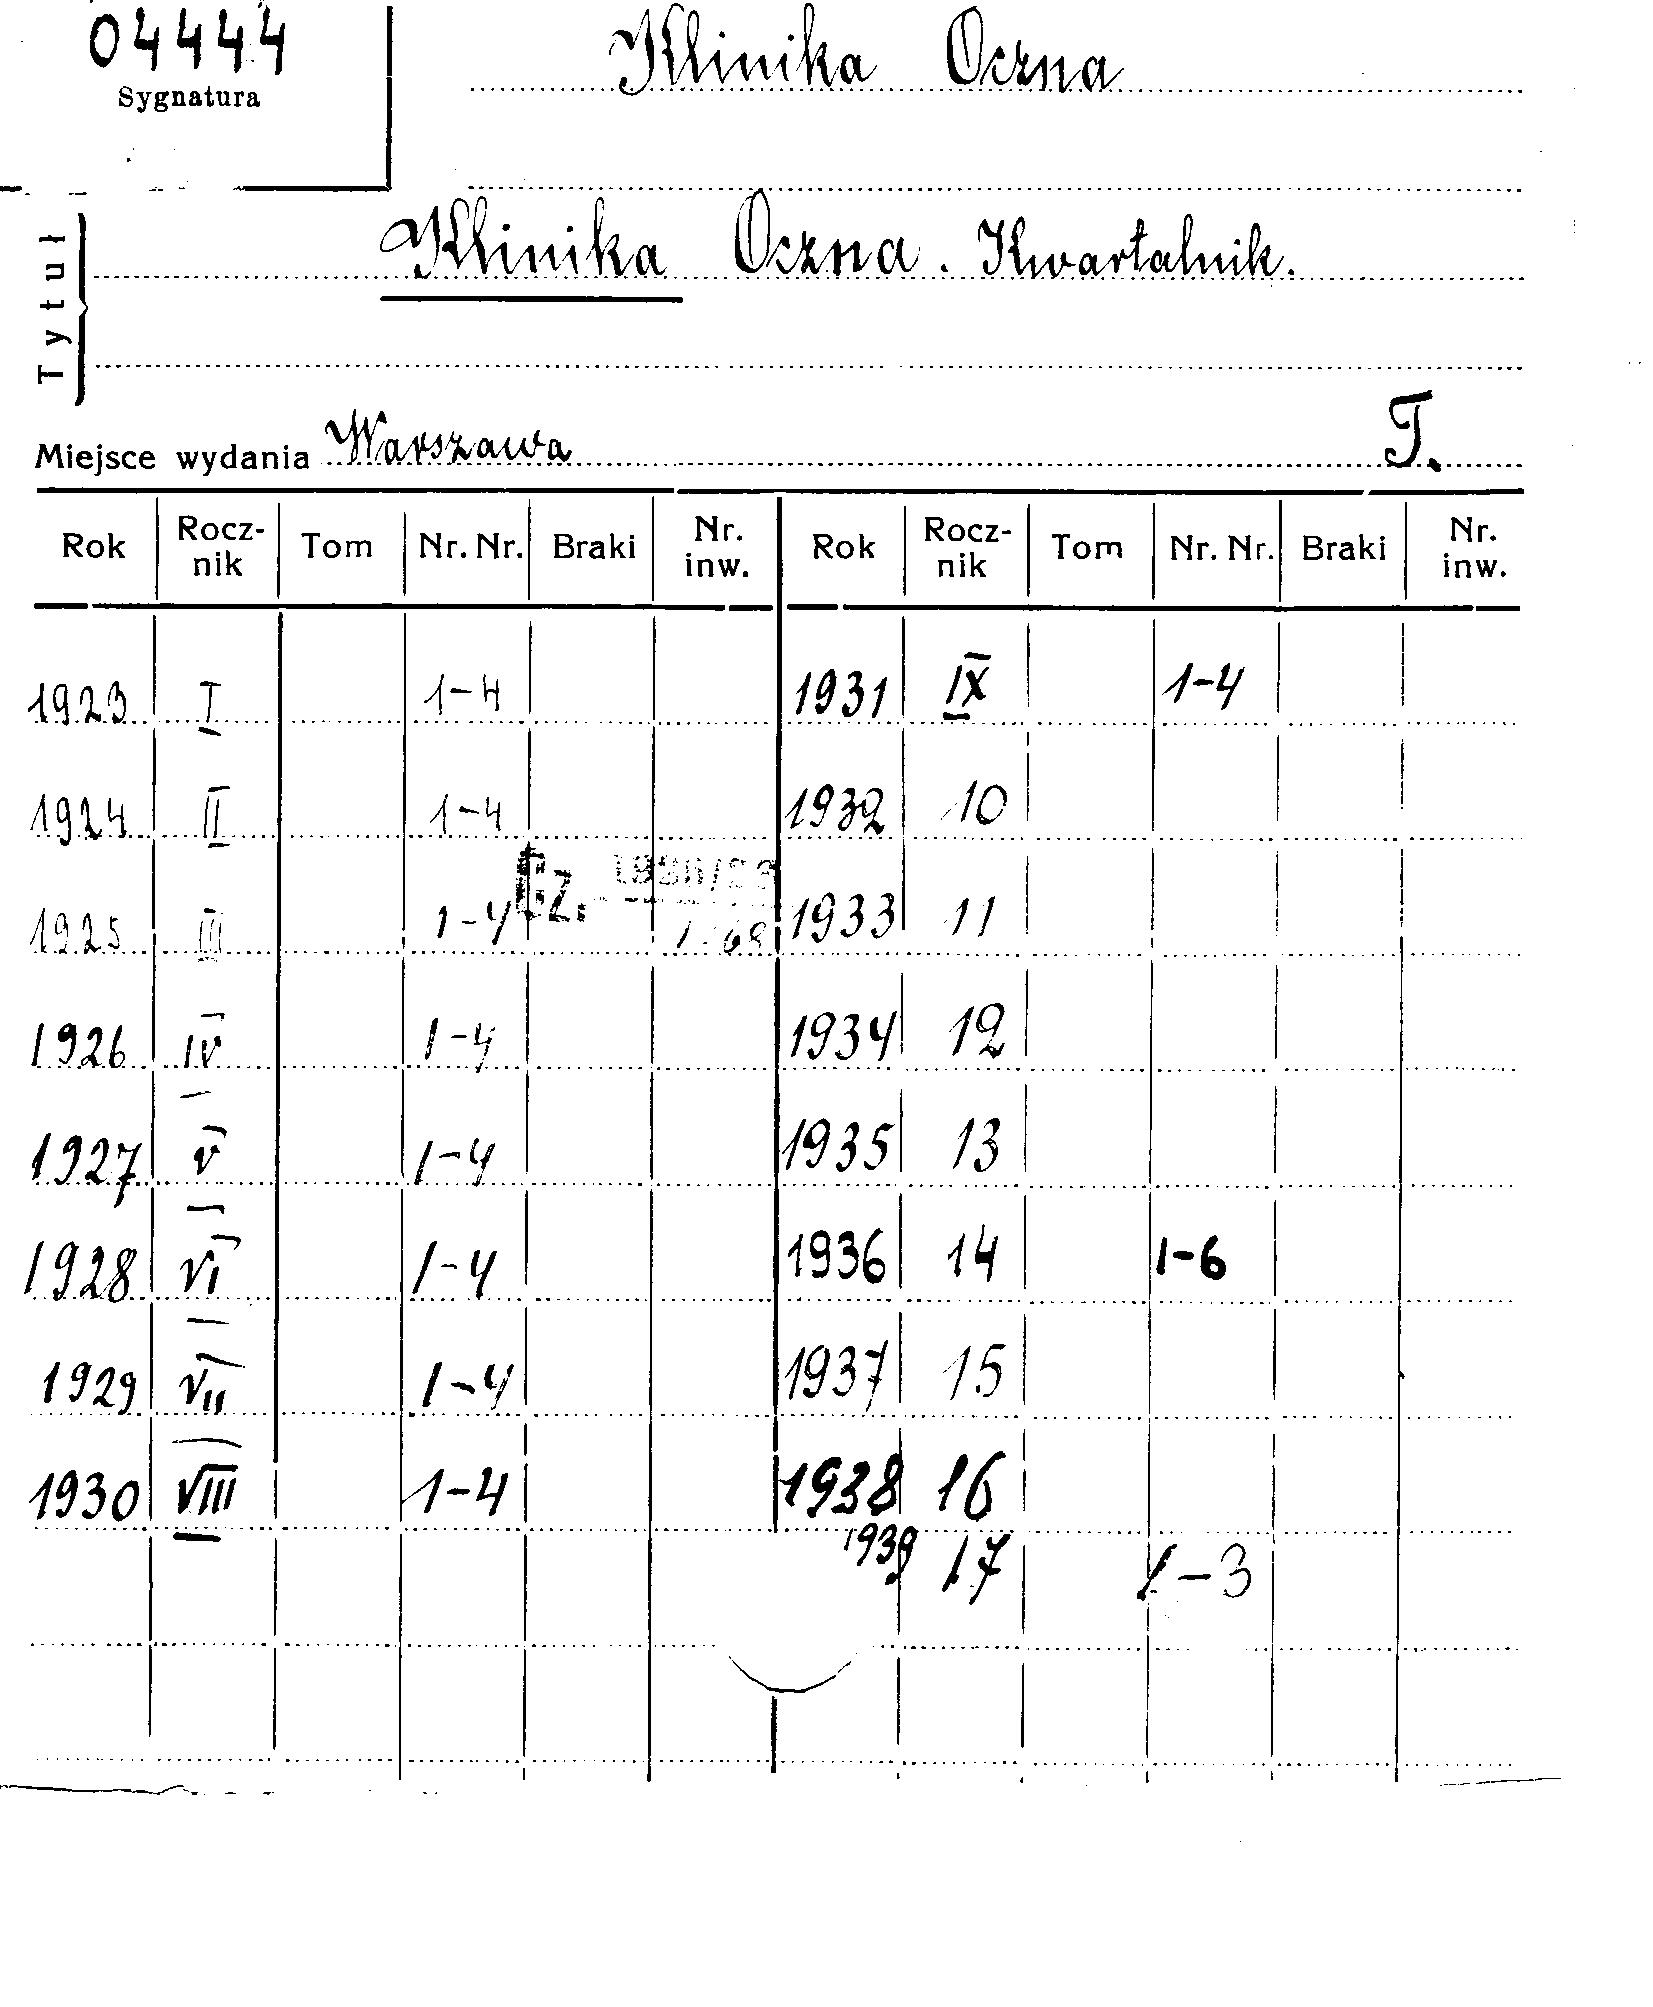 04444
Sygnatura
Klinika Oczna
Tytuł
Klinika Oczna. Kwartalnik.
Miejsce wydania Warszawa T.
Rok Rocz-nik Tom Nr. Nr. Braki Nr. inw. Rok Rocz-nik Tom Nr. Nr. Braki Nr. inw.
1923 I 1-4 1931 IX 1-4
1924 II 1-4 1932 10
Cz.
1925 III 1-4 1933 11
1926 IV 1-4 1934 12
1927 V 1-4 1935 13
1928 VI 1-4 1936 14 1-6
1929 VII 1-4 1937 15
1930 VIII 1-4 1938 16
1939 17 1-3